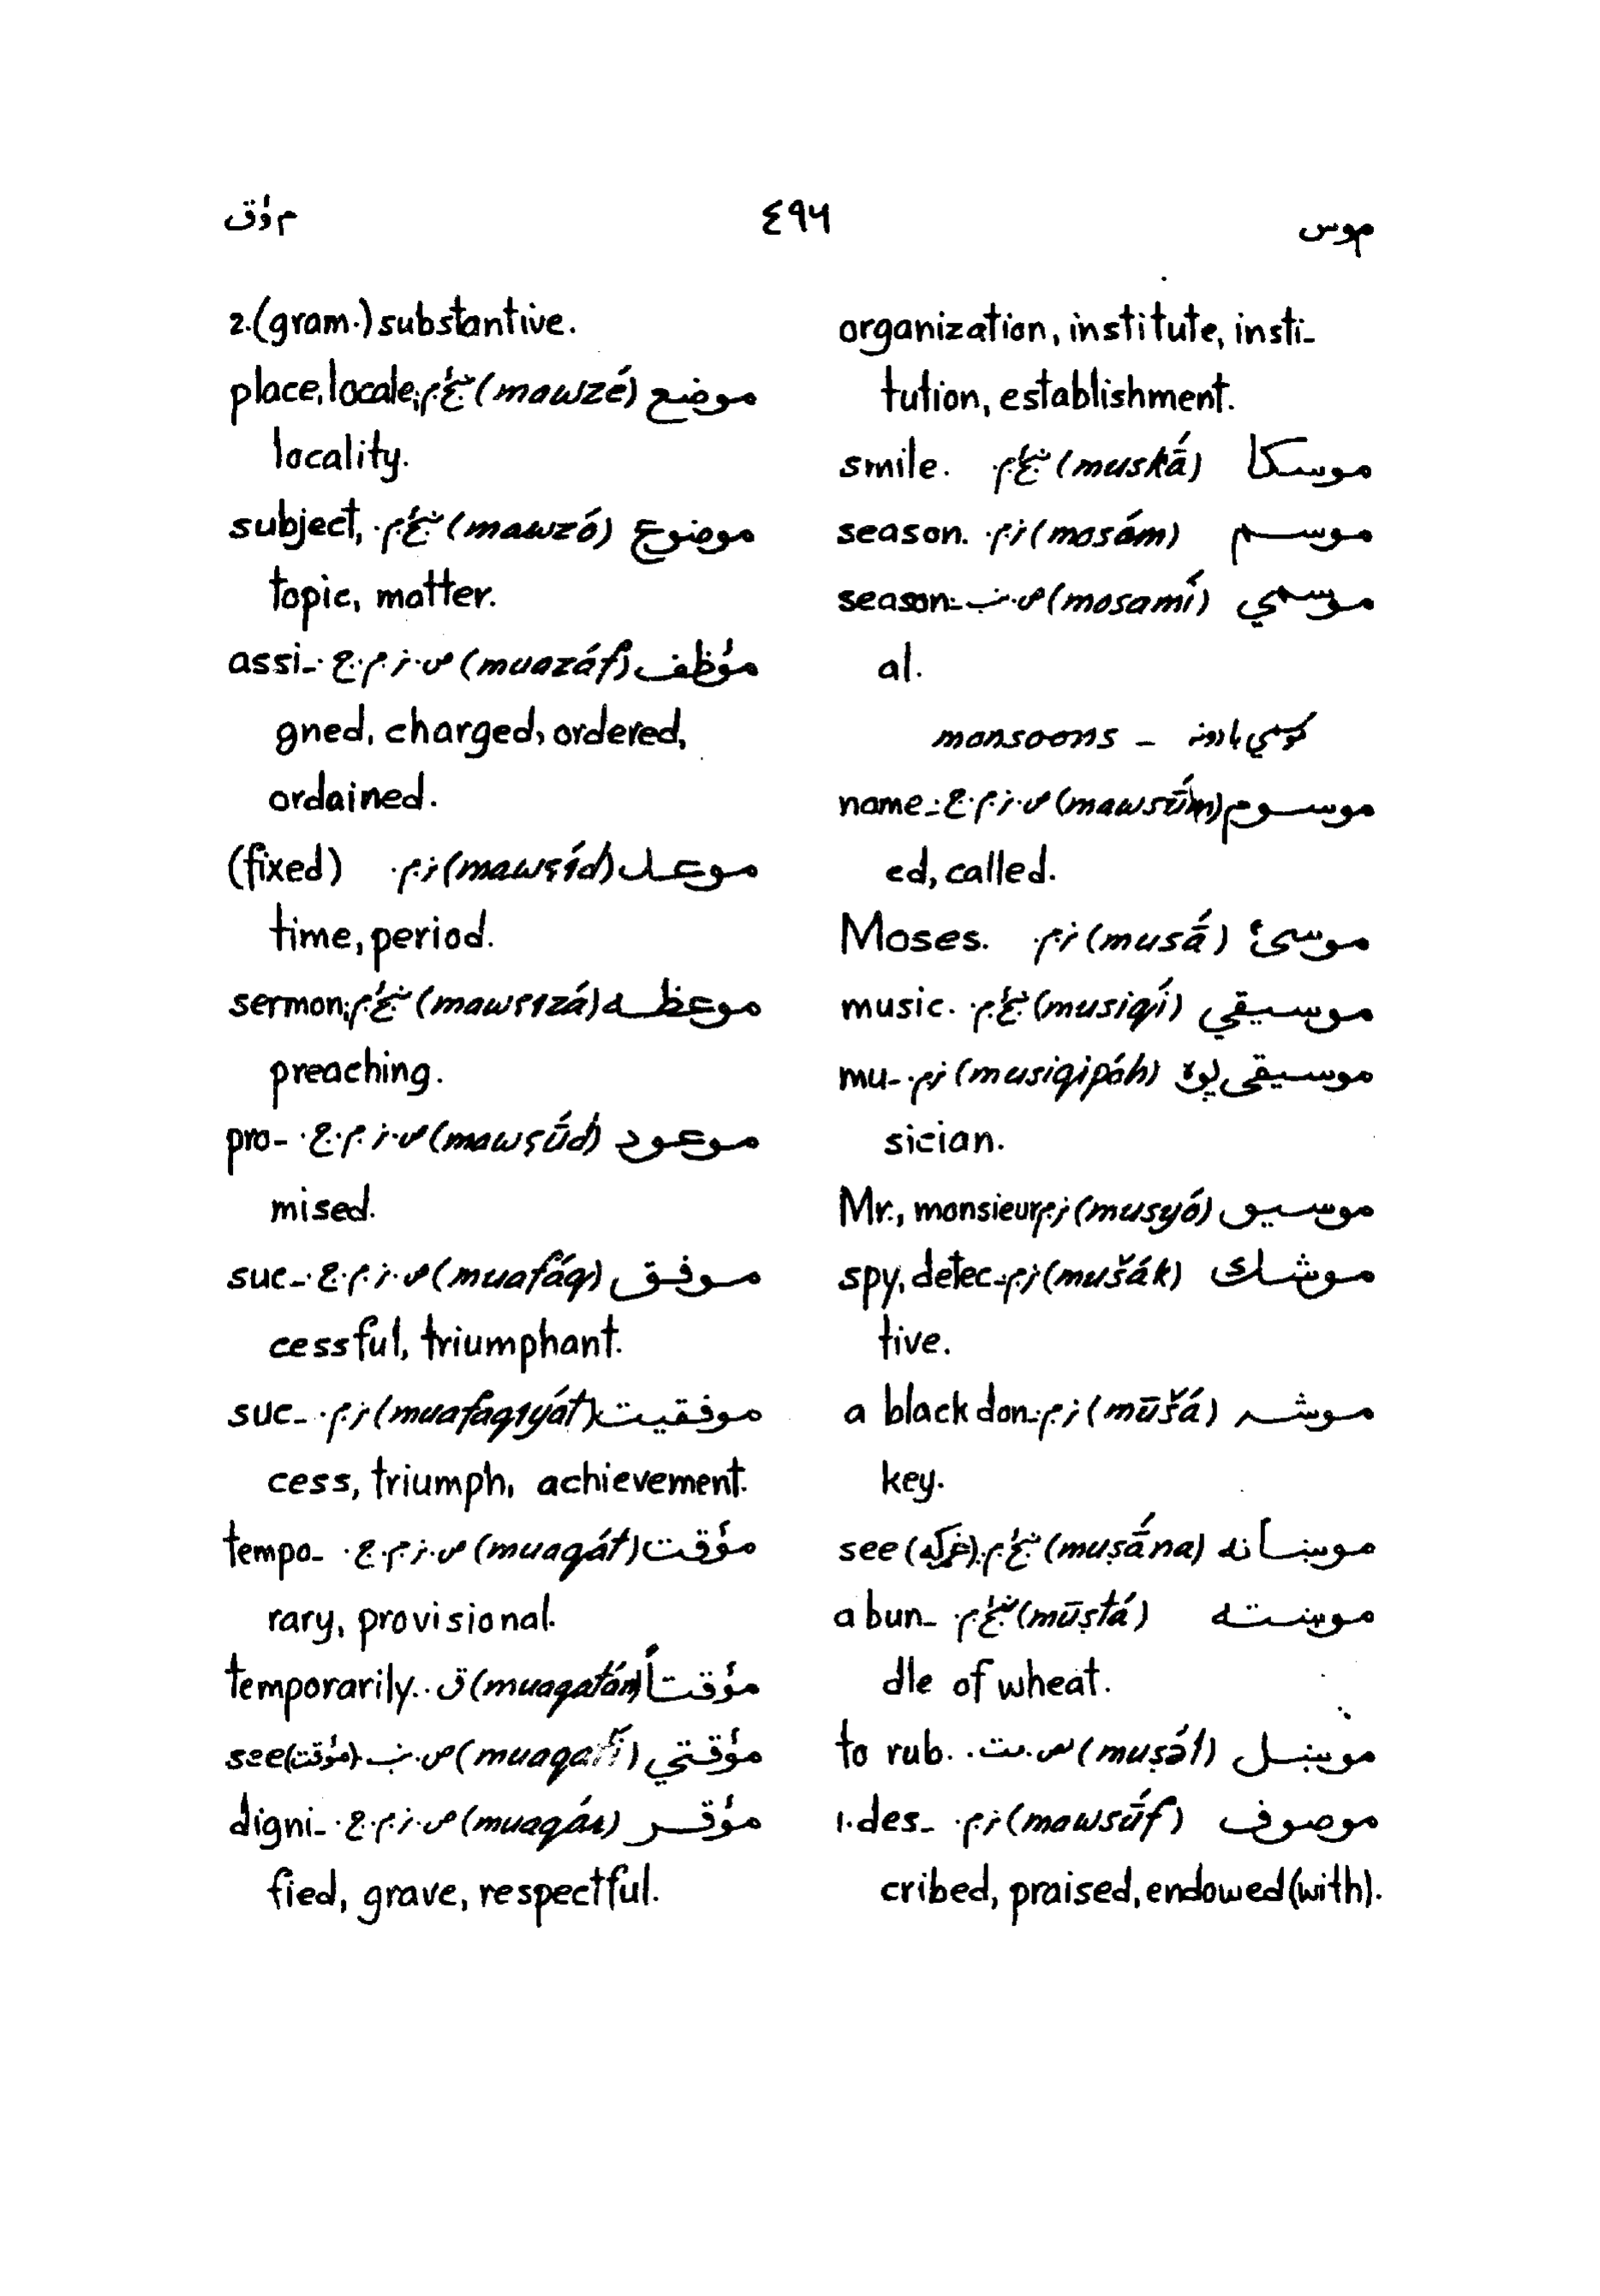 موس ٤٩٦ مؤق
organization, institute, insti-
tution, establishment.
موسکا (muskā́) ښځ.م. smile.
موسم (mosám) ز.م. season.
موسمي (mosamí) ص.نب. season-
al.
monsoons –
موسوم (mawsū́m) ص.ز.م.ج. name-
ed, called.
موسىٰ (musā́) ز.م. Moses.
موسيقي (musiqí) ښځ.م. music.
موسيقي پوه (musiqipóh) ز.م. mu-
sician.
موسيو (musyó) ز.م. Mr., monsieur
موشک (mušák) ز.م. spy, detec-
tive.
موشه (mūšá) ز.م. a black don-
key.
موښانه (muṣā́na) ښځ.م. see
موښته (mūṣtá) ښځ.م. a bun-
dle of wheat.
موښل (muṣə́l) to rub.
موصوف (mawsū́f) ز.م. 1. des-
cribed, praised, endowed (with).
2. (gram.) substantive.
موضع (mawzé) ښځ.م. place, locale,
locality.
موضوع (mawzó) ښځ.م. subject,
topic, matter.
مؤظف (muazáf) ص.ز.م.ج. assi-
gned, charged, ordered,
ordained.
موعد (mawʕíd) ز.م. (fixed)
time, period.
موعظه (mawʕɪzá) ښځ.م. sermon,
preaching.
موعود (mawʕū́d) ص.ز.م.ج. pro-
mised.
موفق (muafáq) ص.ز.م.ج. suc-
cessful, triumphant.
موفقيت (muafaqɪyát) ز.م. suc-
cess, triumph, achievement.
مؤقت (muaqát) ص.ز.م.ج. tempo-
rary, provisional.
مؤقتاً (muaqatán) ق. temporarily.
مؤقتي (muaqatí) ص.نب. see (مؤقت)
مؤقر (muaqár) ص.ز.م.ج. digni-
fied, grave, respectful.